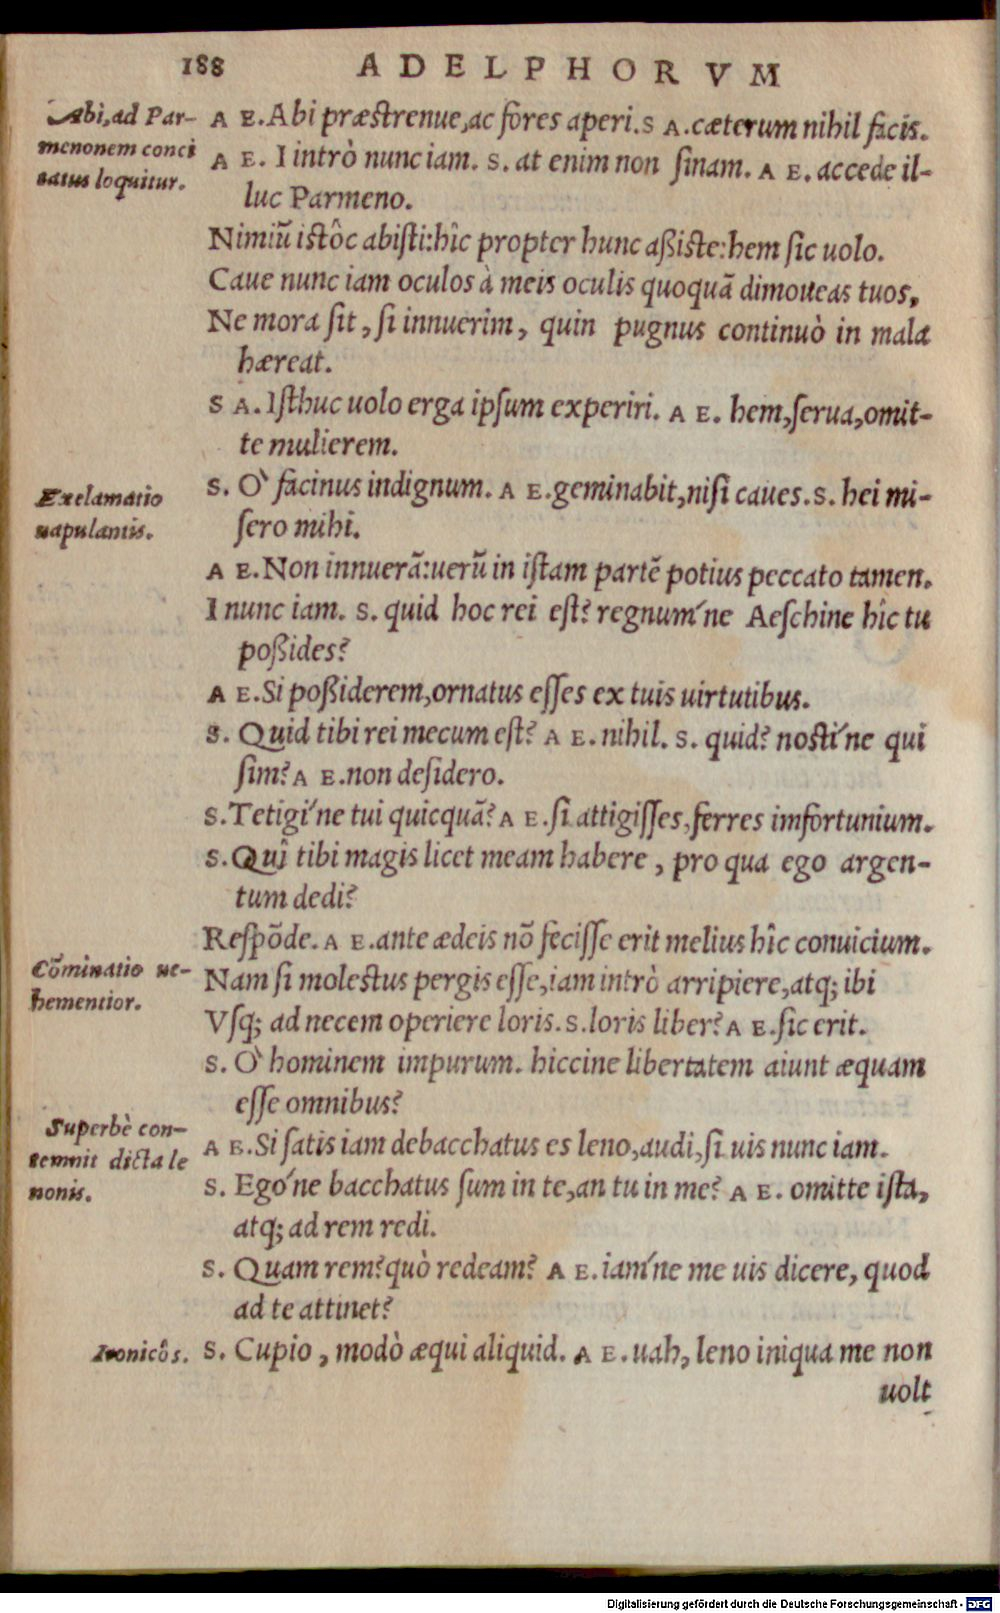 188 ADELPHORVM
Abi, ad Par-
menonem conci
tatus loquitur.
A E. Abi præstrenue, ac fores aperi. S A. cæterum nihil facis.
A E. I intrò nunc iam. S. at enim non sinam. A E. accede il-
luc Parmeno.
Nimiũ istôc abisti: hîc propter hunc aßiste: hem sic uolo.
Caue nunc iam oculos à meis oculis quoquã dimoueas tuos,
Ne mora sit, si innuerim, quin pugnus continuò in mala
hæreat.
S A. Isthuc uolo erga ipsum experiri. A E. hem, serua, omit-
te mulierem.
Exclamatio
uapulantis.
S. O' facinus indignum. A E. geminabit, nisi caues. S. hei mi-
sero mihi.
A E. Non innuerã: uerũ in istam partẽ potius peccato tamen.
I nunc iam. S. quid hoc rei est? regnum'ne Aeschine hîc tu
poßides?
A E. Si poßiderem, ornatus esses ex tuis uirtutibus.
S. Quid tibi rei mecum est? A E. nihil. S. quid? nosti'ne qui
sim? A E. non desidero.
S. Tetigi'ne tui quicquã? A E. si attigisses, ferres infortunium.
S. Quî tibi magis licet meam habere, pro qua ego argen-
tum dedi?
Respõde. A E. ante ædeis nõ fecisse erit melius hîc conuicium.
Cõminatio ue-
hementior.
Nam si molestus pergis esse, iam intrò arripiere, atq; ibi
Vsq; ad necem operiere loris. S. loris liber? A E. sic erit.
S. O' hominem impurum. hiccine libertatem aiunt æquam
esse omnibus?
Superbè con-
temnit dicta le
nonis.
A E. Si satis iam debacchatus es leno, audi, si uis nunc iam.
S. Ego'ne bacchatus sum in te, an tu in me? A E. omitte ista,
atq; ad rem redi.
S. Quam rem? quò redeam? A E. iam'ne me uis dicere, quod
ad te attinet?
Ironicôs.
S. Cupio, modò æqui aliquid. A E. uah, leno iniqua me non
uolt
Digitalisierung gefördert durch die Deutsche Forschungsgemeinschaft - DFG